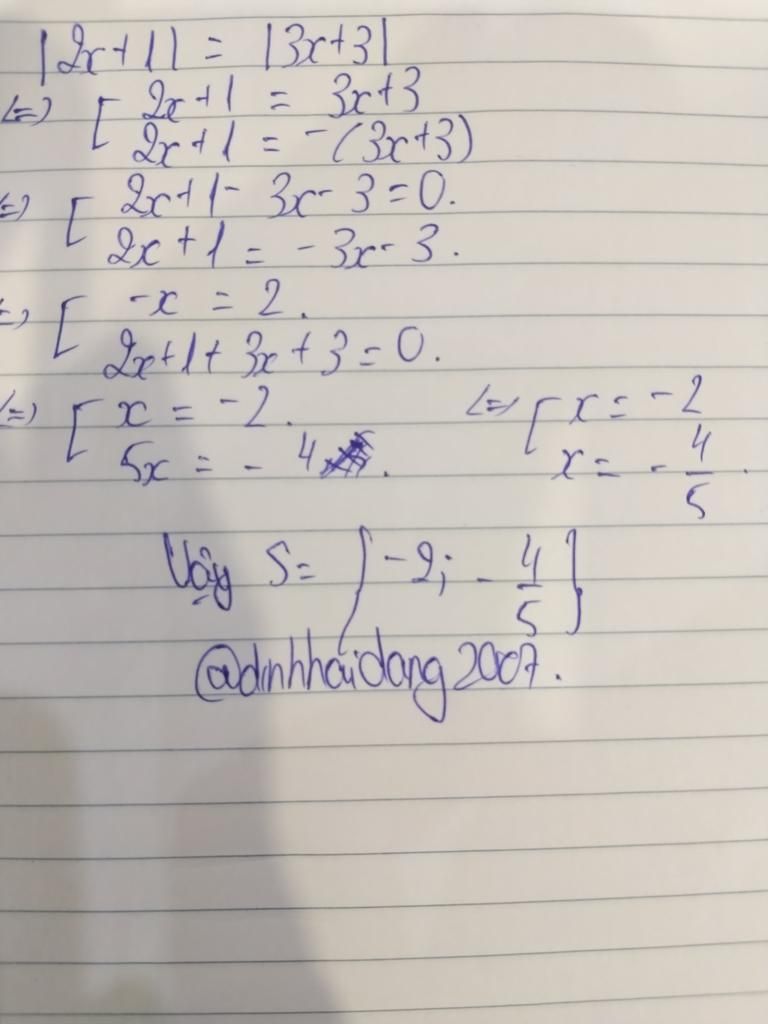 |2x+1| = |3x+3|
<=> [ 2x+1 = 3x+3
2x+1 = -(3x+3)
<=> [ 2x+1- 3x- 3 = 0.
2x+1 = -3x-3.
<=> [ -x = 2.
2x+1+3x+3=0.
<=> [ x = -2. <=> [ x = -2
5x = - 4. x = - 4/5.
Vậy S= {-2; - 4/5}
@dinhhaidang2007.